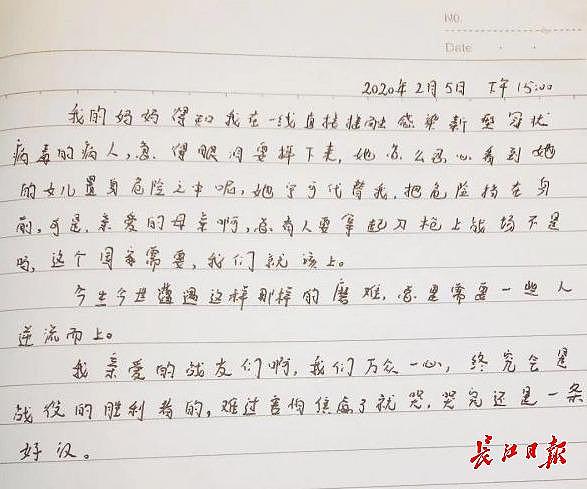 NO.
Date
2020年2月5日 下午15:00
我的妈妈得知我在一线直接接触感染新型冠状
病毒的病人,急得眼泪要掉下来,她怎么忍心看到她
的女儿置身危险之中呢,她宁可代替我,把危险挡在身
前,可是,亲爱的母亲啊,总有人要拿起刀枪上战场不是
吗,这个国家需要,我们就该上。
今生今世遭遇这样那样的磨难,总是需要一些人
逆流而上。
我亲爱的战友们啊,我们万众一心,终究会是
战役的胜利者的,难过害怕焦虑了就哭,哭完还是一条
好汉。
长江日报